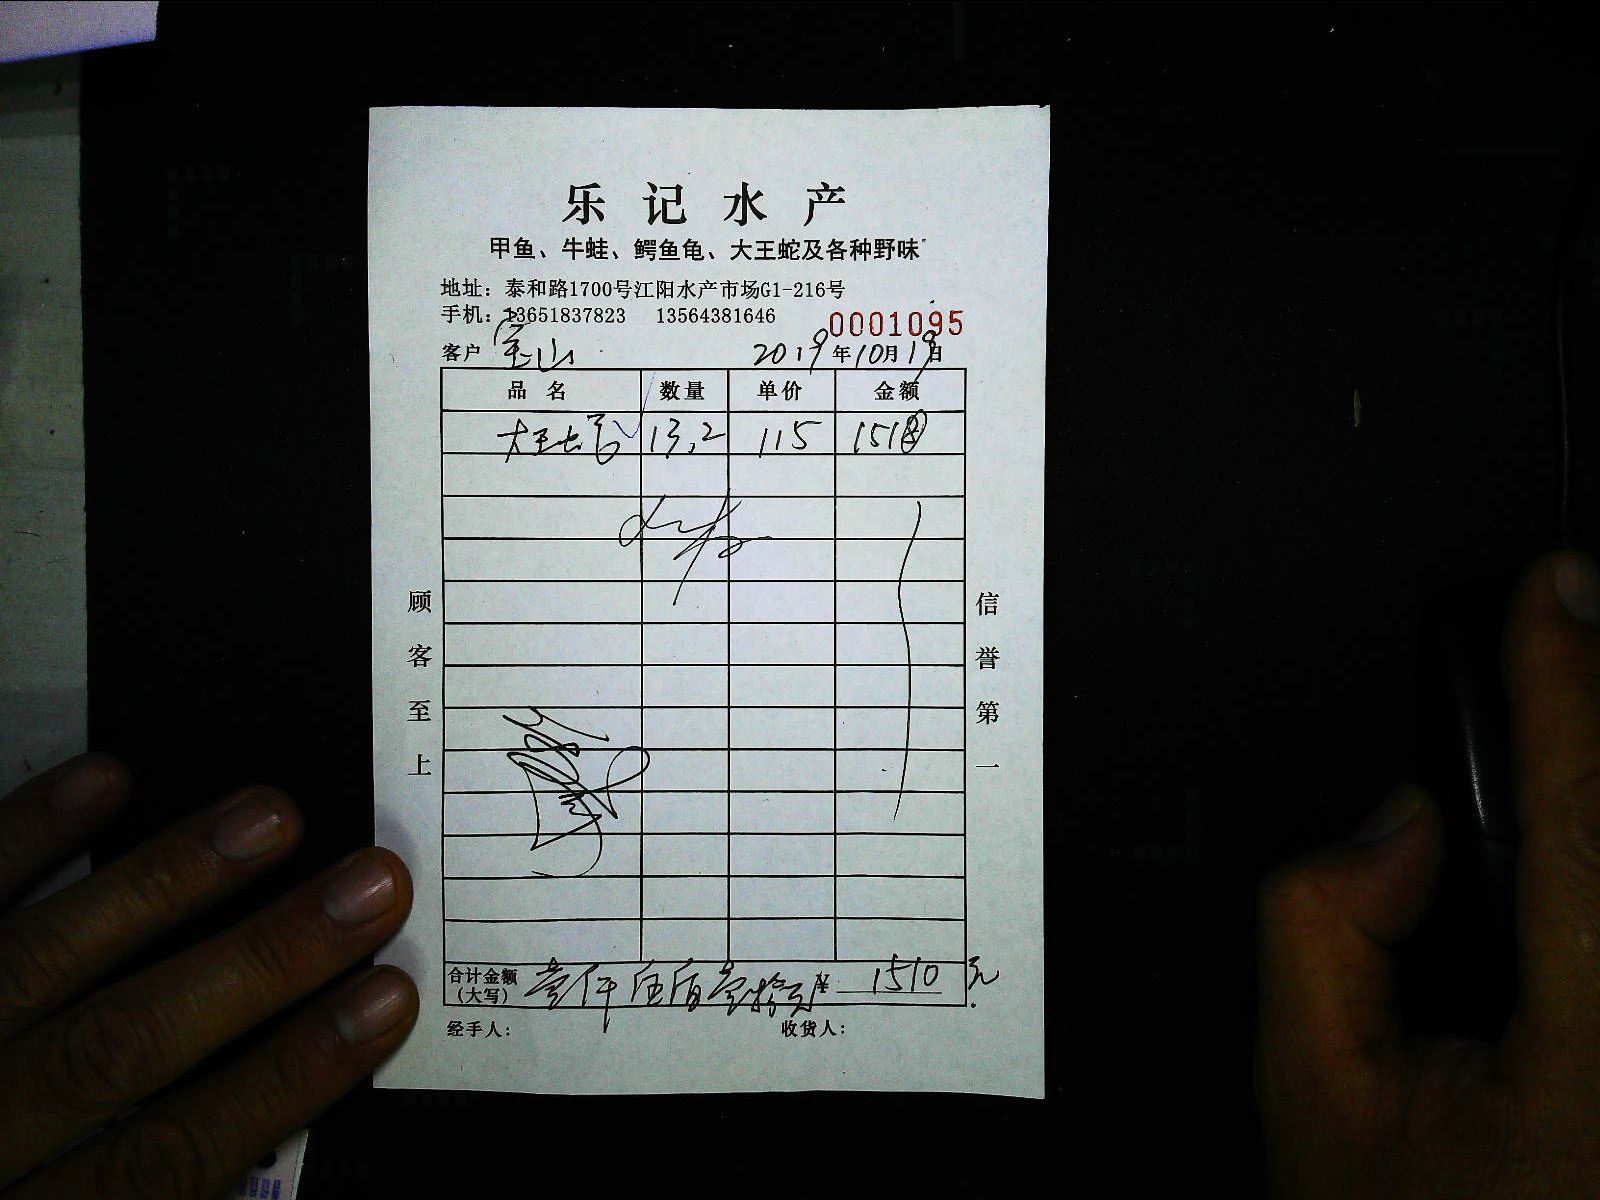 乐记水产
甲鱼、牛蛙、鳄鱼龟、大王蛇及各种野味
地址：泰和路1700号江阳水产市场G1-216号
手机：13651837823 13564381646
0001095
客户 宝山 2019年10月19日
品名 数量 单价 金额
大王 13.2 115 1518
顾客至上
信誉第一
合计金额（大写） 壹仟伍佰壹拾元 ¥ 1510元
经手人： 收货人：